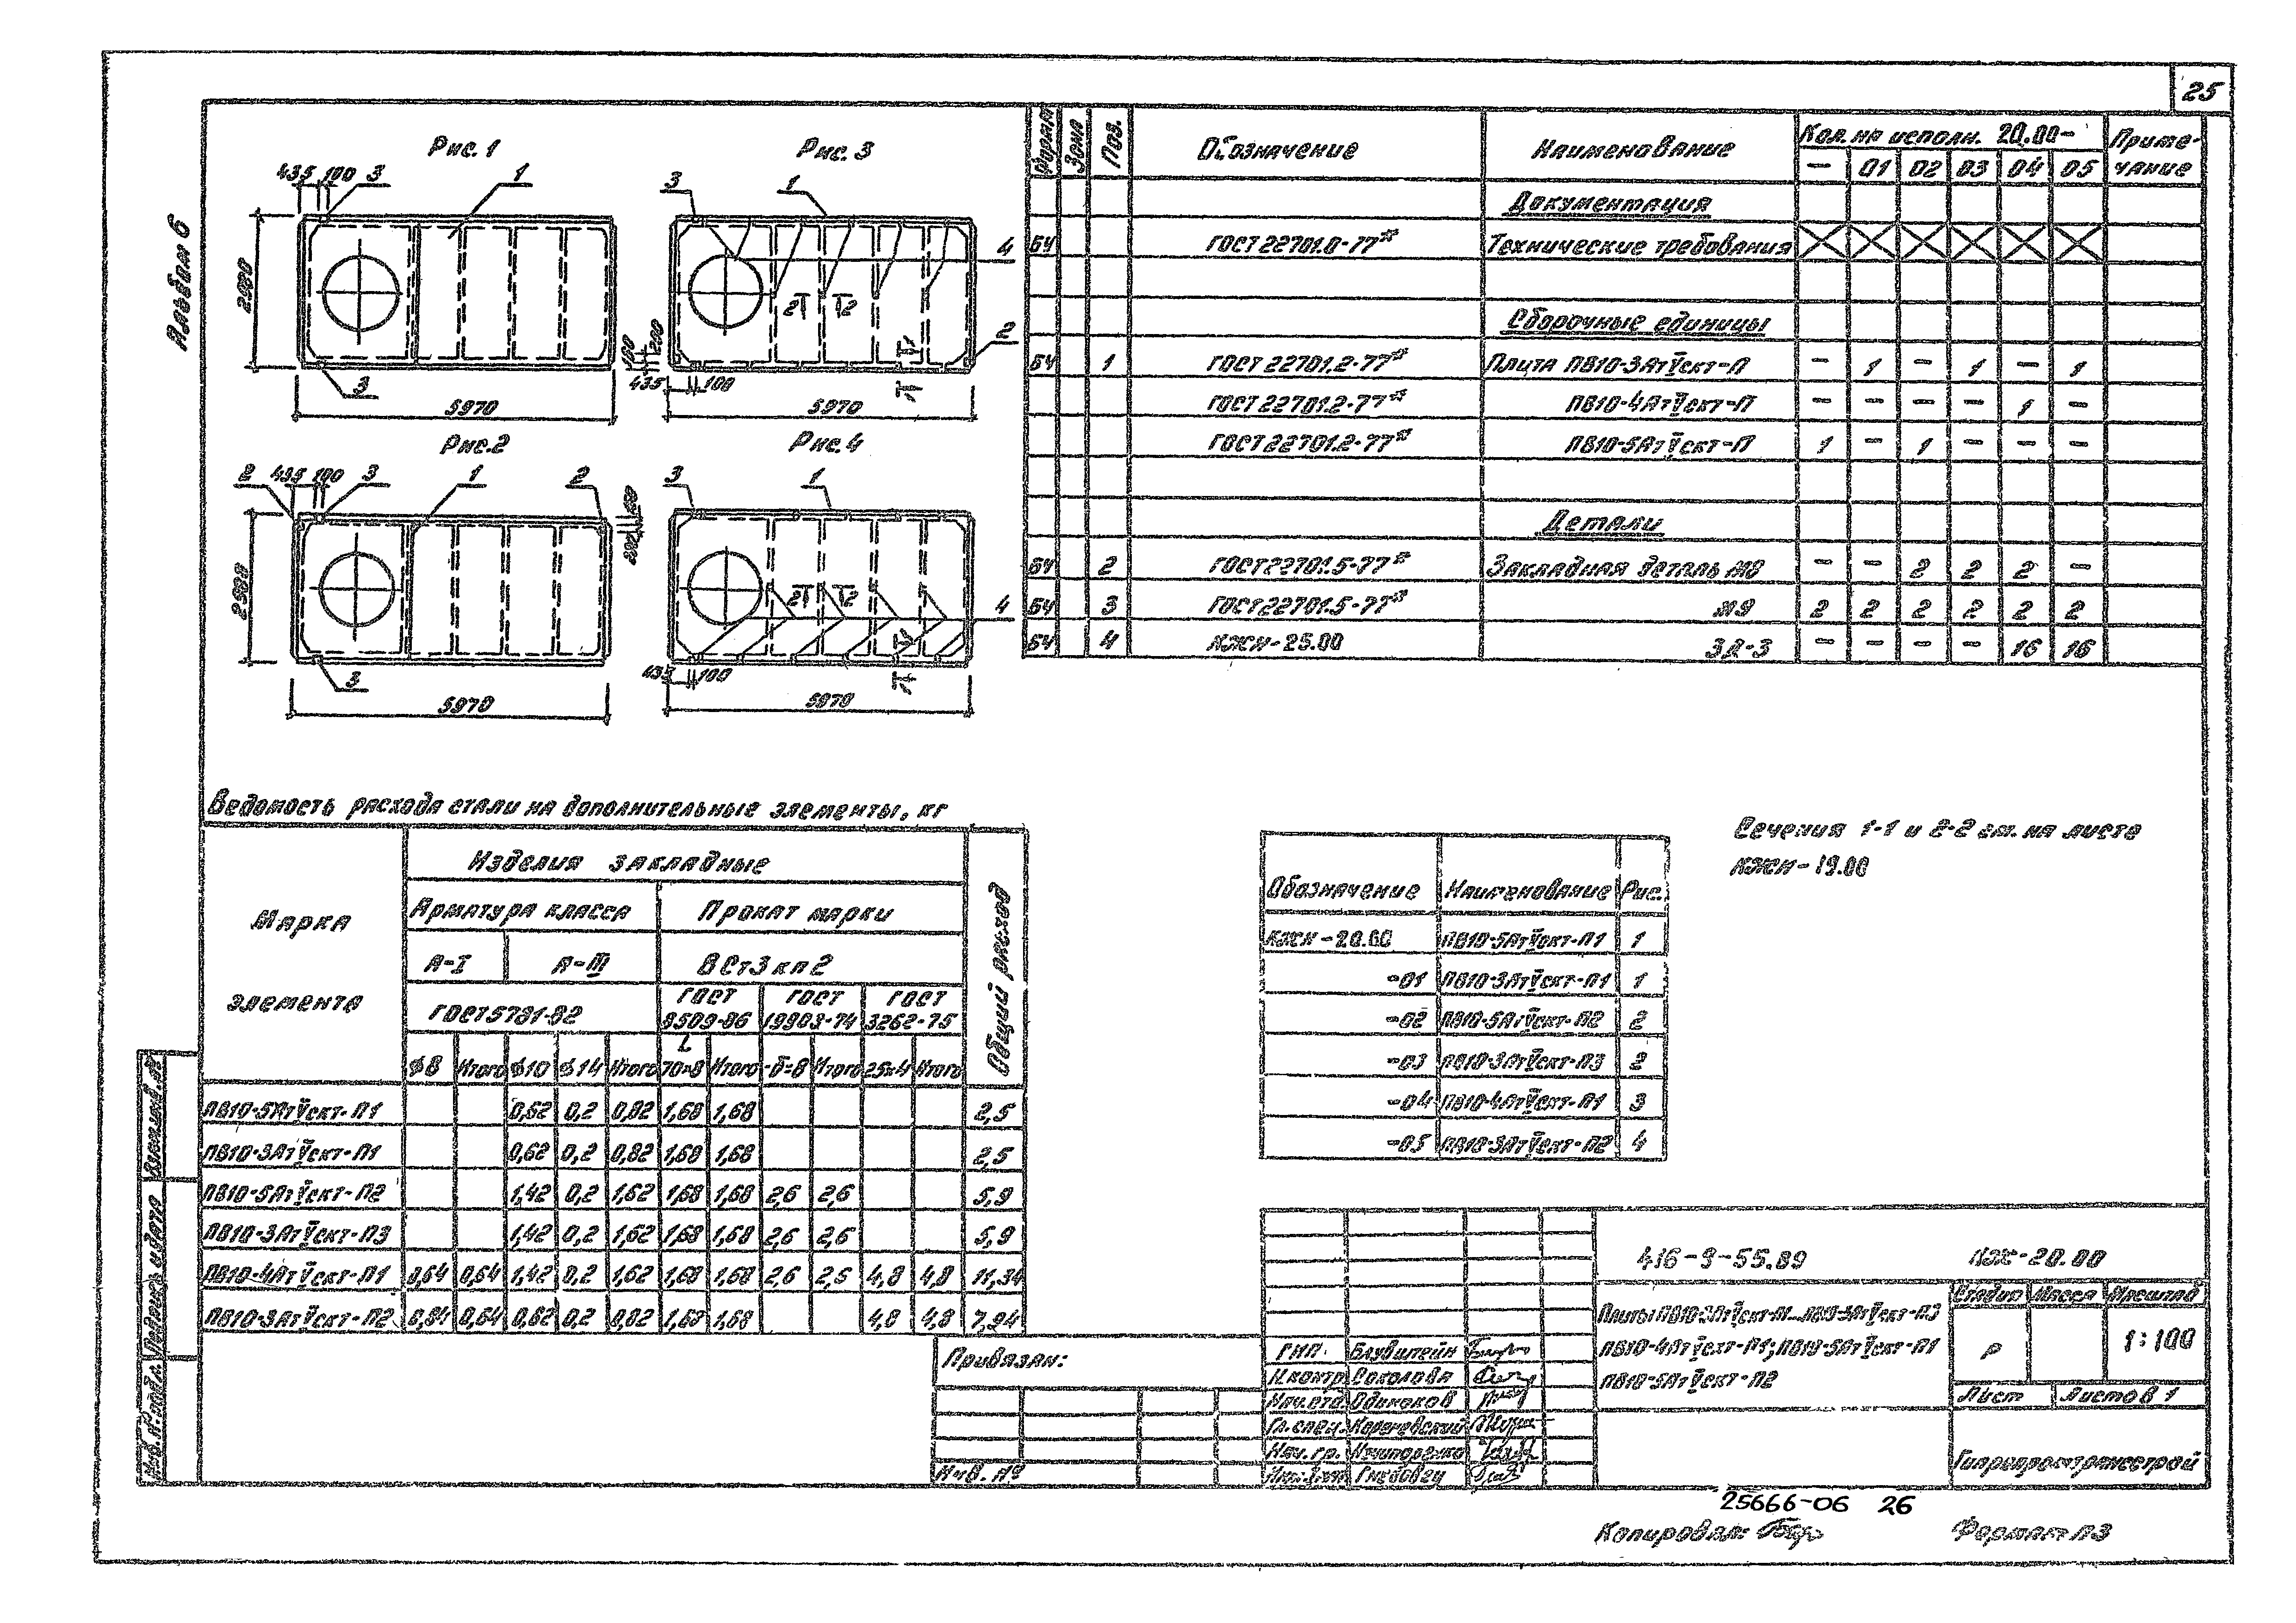 25
Альбом 6
Рис. 1
435 100 3 1
2980
3
5970
Рис. 3
3 1
4
2 2
100 200
2
1
435 100
1
5970
Рис. 2
2 435 100 3 1 2
2980
3
5970
Рис. 4
3 1
2 2
4
1
435 100
1
5970
Формат Зона Поз. Обозначение Наименование Кол. на исполн. 20.00- Приме-
— 01 02 03 04 05 чание
Документация
БЧ ГОСТ 22701.0-77* Технические требования
Сборочные единицы
БЧ 1 ГОСТ 22701.2-77* Плита ПВ10-3АтVскт-П — 1 — 1 — 1
ГОСТ 22701.2-77* ПВ10-4АтVскт-П — — — — 1 —
ГОСТ 22701.2-77* ПВ10-5АтVскт-П 1 — 1 — — —
Детали
БЧ 2 ГОСТ 22701.5-77* Закладная деталь М8 — — 2 2 2 —
БЧ 3 ГОСТ 22701.5-77* М9 2 2 2 2 2 2
БЧ 4 КЖИ-25.00 ЗД-3 — — — — 16 16
Ведомость расхода стали на дополнительные элементы, кг
Марка элемента
Изделия закладные
Общий расход
Арматура класса Прокат марки
А-I А-III ВСт3кп2
ГОСТ 5781-82 ГОСТ 8509-86 ГОСТ 19903-74 ГОСТ 3262-75
ф8 Итого ф10 ф14 Итого L 70×8 Итого -δ=8 Итого 25×4 Итого
ПВ10-5АтVскт-П1 0,62 0,2 0,82 1,68 1,68 2,5
ПВ10-3АтVскт-П1 0,62 0,2 0,82 1,68 1,68 2,5
ПВ10-5АтVскт-П2 1,42 0,2 1,62 1,68 1,68 2,6 2,6 5,9
ПВ10-3АтVскт-П3 1,42 0,2 1,62 1,68 1,68 2,6 2,6 5,9
ПВ10-4АтVскт-П1 0,64 0,64 1,42 0,2 1,62 1,68 1,68 2,6 2,6 4,8 4,8 11,34
ПВ10-3АтVскт-П2 0,64 0,64 0,62 0,2 0,82 1,68 1,68 4,8 4,8 7,94
Обозначение Наименование Рис.
КЖИ-20.00 ПВ10-5АтVскт-П1 1
-01 ПВ10-3АтVскт-П1 1
-02 ПВ10-5АтVскт-П2 2
-03 ПВ10-3АтVскт-П3 2
-04 ПВ10-4АтVскт-П1 3
-05 ПВ10-3АтVскт-П2 4
Сечения 1-1 и 2-2 см. на листе
КЖИ-19.00
Взам.инв.№
Подпись и дата
Инв.№ подл.
Привязан:
Инв. №
416-9-55.89 КЖ-20.00
Плиты ПВ10-3АтVскт-П1...ПВ10-3АтVскт-П3
ПВ10-4АтVскт-П1; ПВ10-5АтVскт-П1
ПВ10-5АтVскт-П2
Стадия Масса Масштаб
Р 1:100
Лист Листов 1
ГИП
Н.контр. Соколова
Нач.отд. Одиноков
Гл.спец. Корчевский
Нач. гр. Ничипоренко
Гипропромтрансстрой
25666-06 26
Копировал: Формат А3